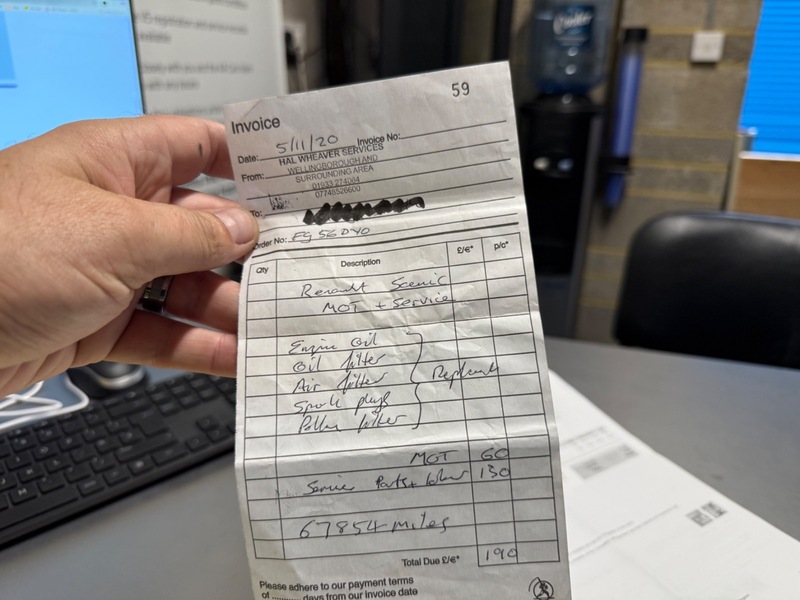 59
Invoice
Date: 5/11/20 Invoice No:
HAL WHEAVER SERVICES
From: WELLINGBOROUGH AND
SURROUNDING AREA
01933 274084
07748526600
To:
Order No: FG 56 DYO
Qty Description £/€* p/c*
Renault Scenic
MOT + Service
Engine Oil
Oil filter
Air filter
Spark plugs
Pollen filter
MOT 60
Service Parts + labour 130
67854 Miles
Total Due £/€* 190
Please adhere to our payment terms
of ........... days from our invoice date